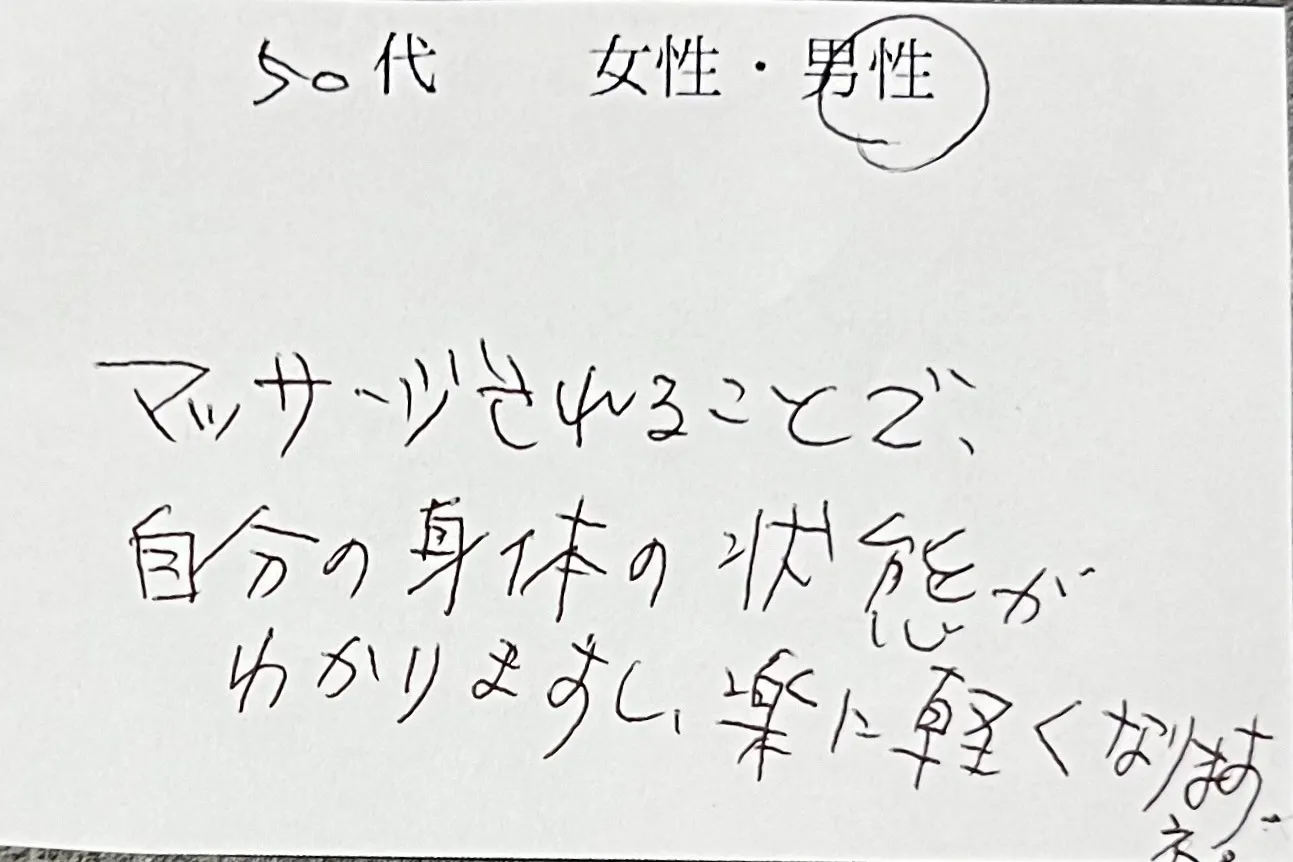 50代 女性・男性
マッサージされることで、
自分の身体の状態が
わかりますし、楽に軽くなります
ネ。